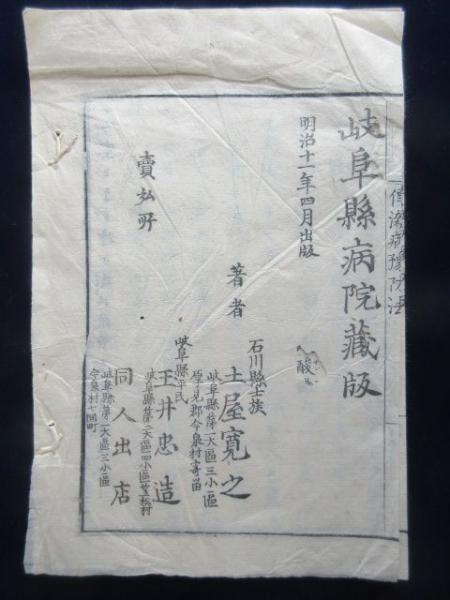 傳染病豫防法
岐阜縣病院藏版
明治十一年四月出版
酸
著者
石川縣士族
土屋寛之
岐阜縣第一大區三小區
厚見郡今泉村寄留
賣弘所
岐阜縣平民
玉井忠造
岐阜縣第二大區四小區笠松村
同人出店
岐阜縣第一大區三小區
今泉村七間町